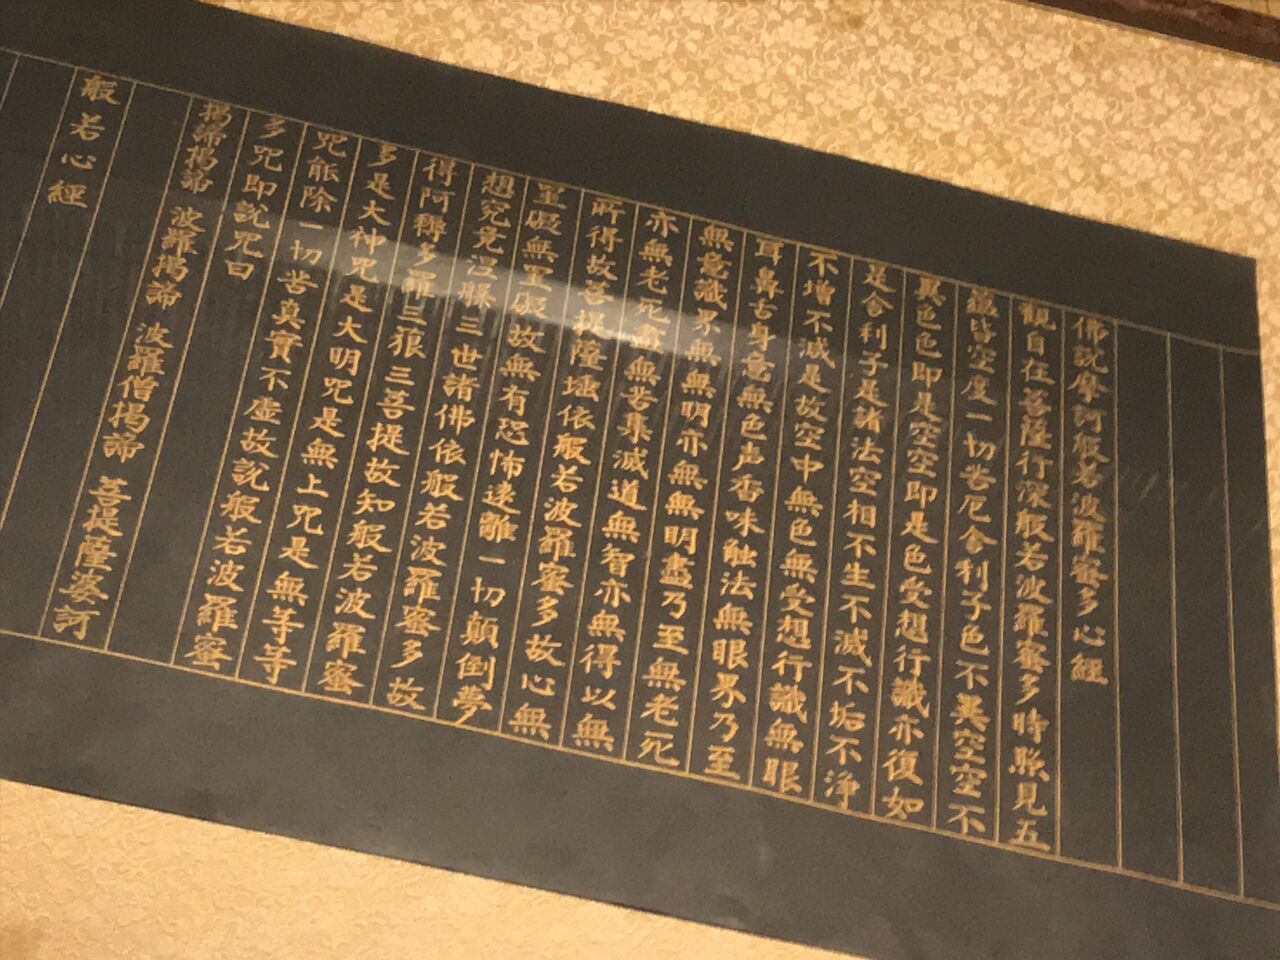 佛説摩訶般若波羅蜜多心經
觀自在菩薩行深般若波羅蜜多時照見五
蘊皆空度一切苦厄舍利子色不異空空不
異色色即是空空即是色受想行識亦復如
是舍利子是諸法空相不生不滅不垢不淨
不增不減是故空中無色無受想行識無眼
耳鼻舌身意無色声香味触法無眼界乃至
無意識界無無明亦無無明盡乃至無老死
亦無老死盡無苦集滅道無智亦無得以無
所得故菩提薩埵依般若波羅蜜多故心無
罣礙無罣礙故無有恐怖遠離一切顛倒夢
想究竟涅槃三世諸佛依般若波羅蜜多故
得阿耨多羅三藐三菩提故知般若波羅蜜
多是大神咒是大明咒是無上咒是無等等
咒能除一切苦真實不虚故説般若波羅蜜
多咒即説咒曰
揭諦揭諦 波羅揭諦 波羅僧揭諦 菩提薩婆訶
般若心經